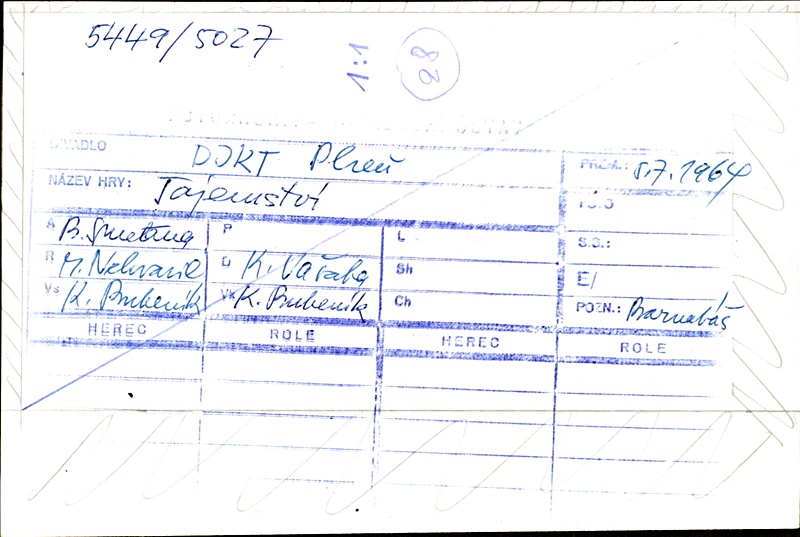 5449/5027
1:1
28
DIVADLO DJKT Plzeň PREM.: 5.7.1964
NÁZEV HRY: Tajemství
A B. Smetana P L S.G.:
R D K. Vašata Sh E/
Vs K. Bubeník Vk K. Bubeník Ch POZN.: Barnabáš
HEREC ROLE HEREC ROLE